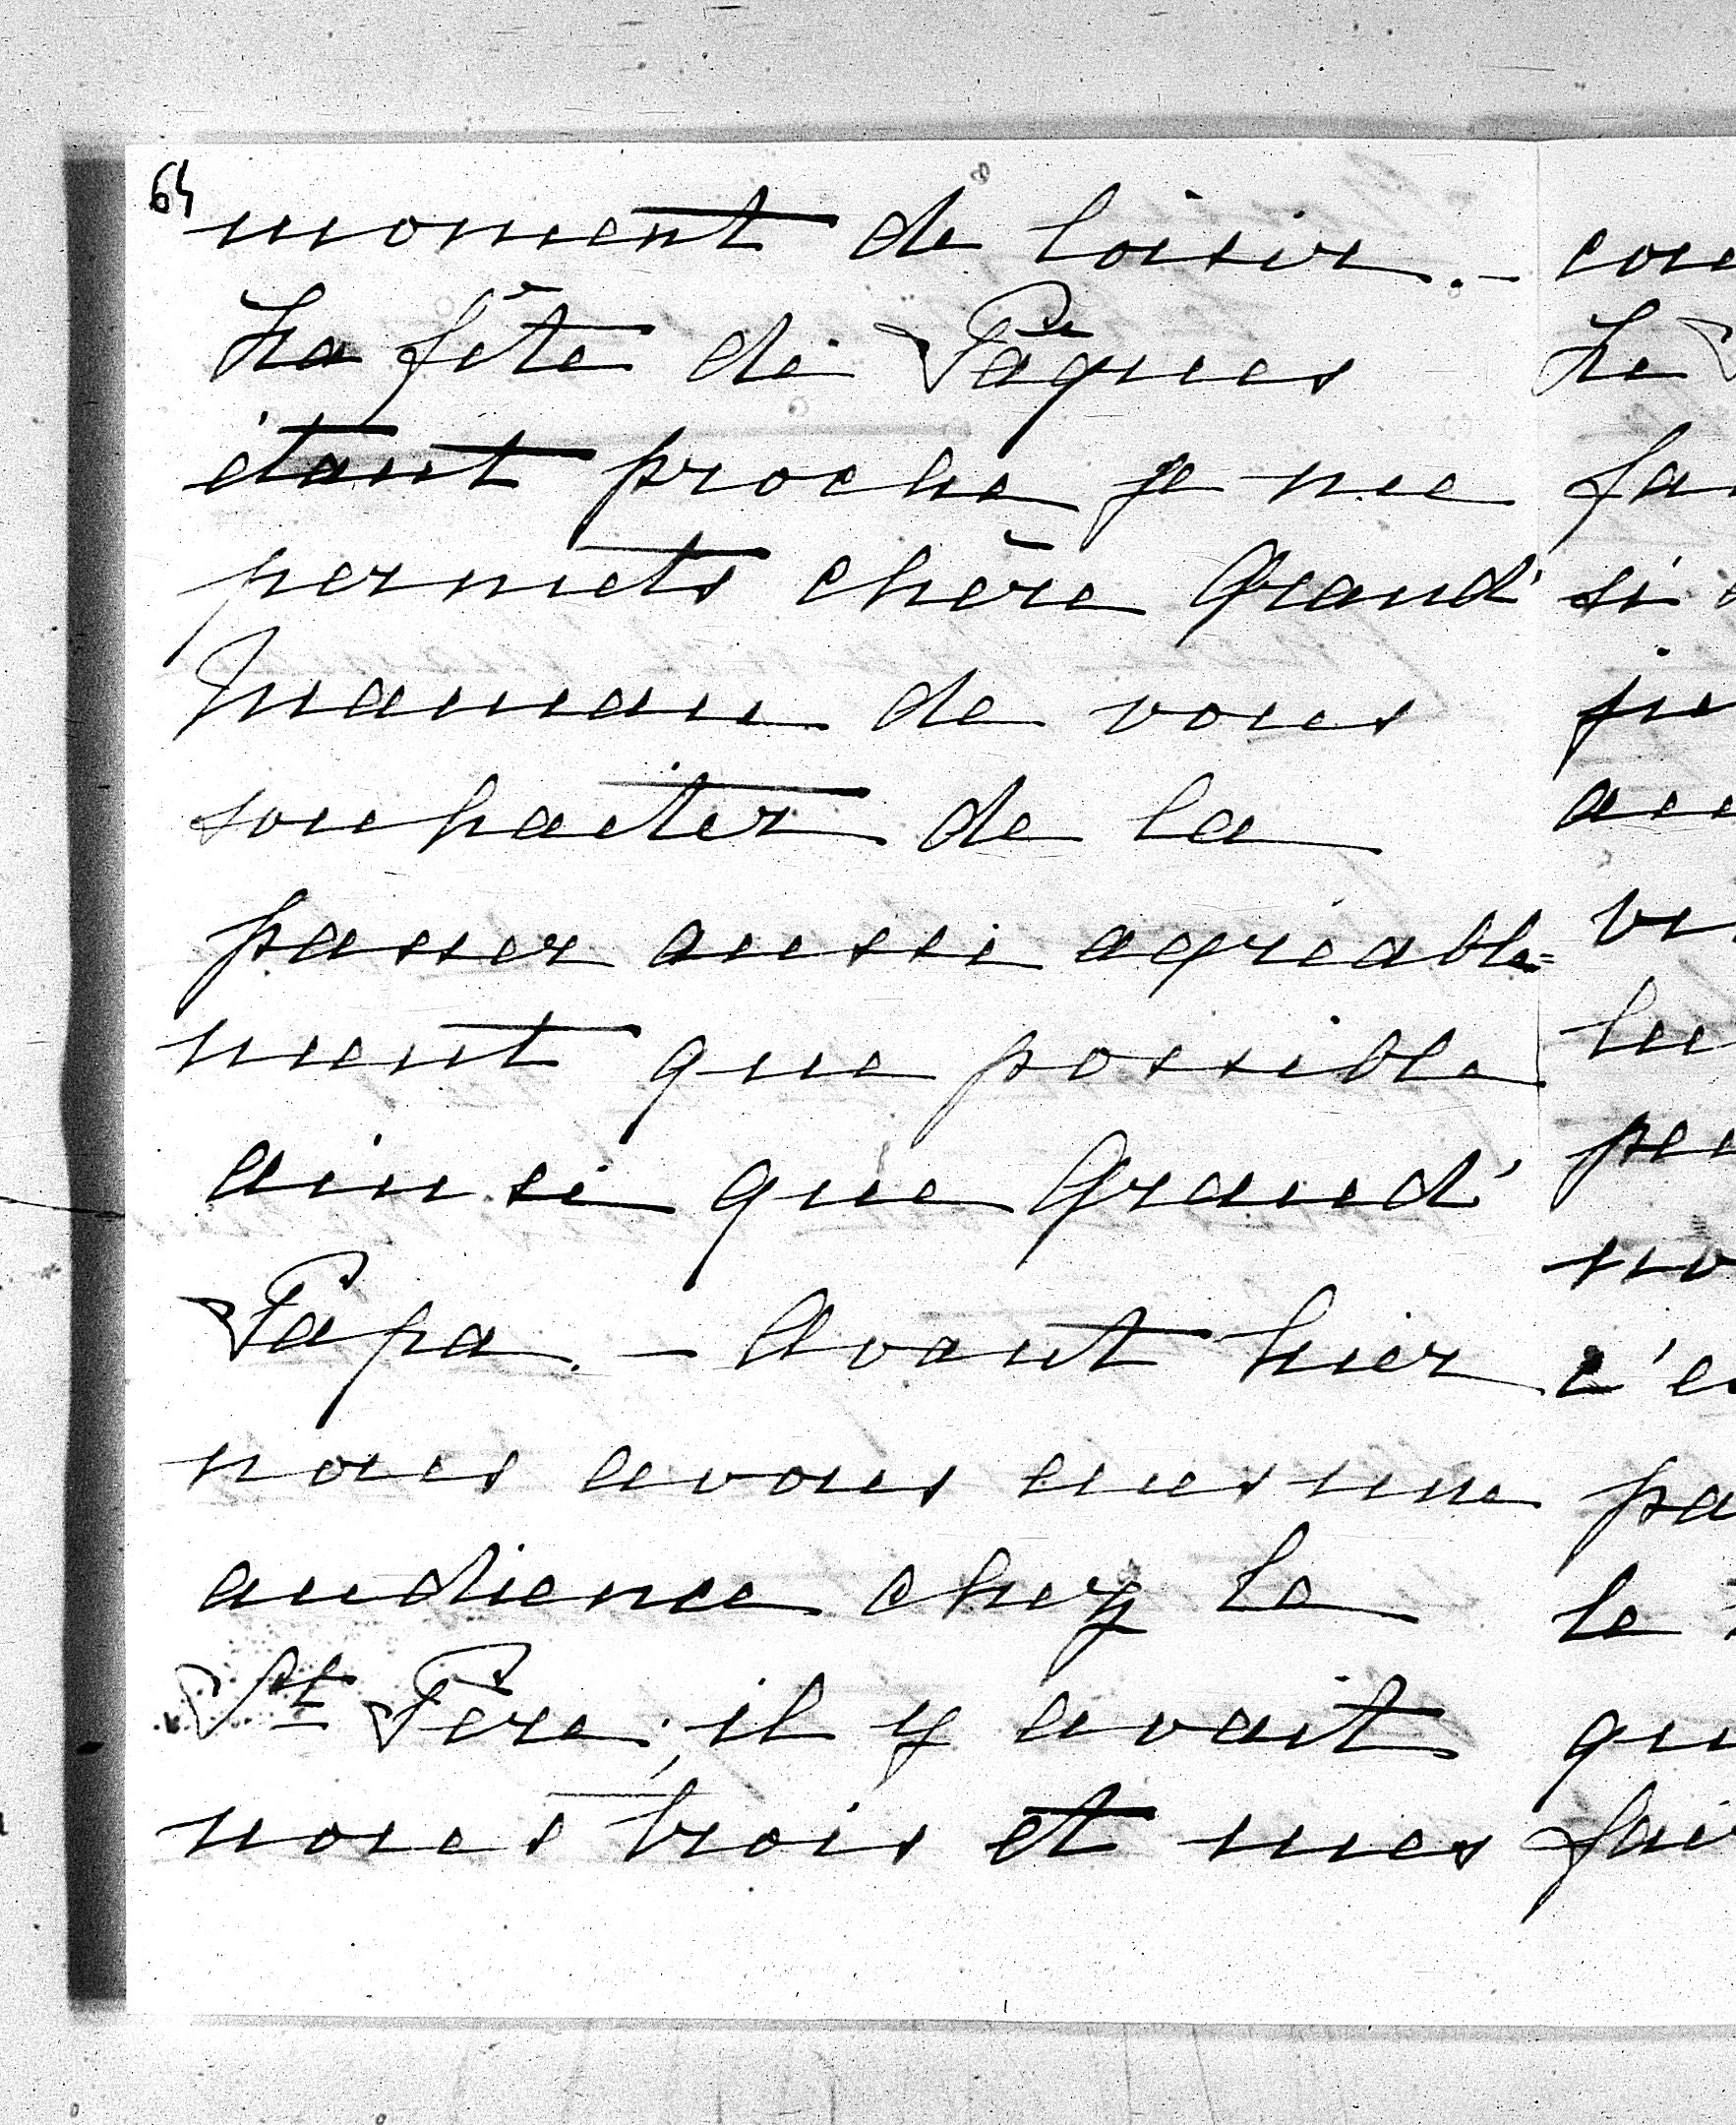 64
moment de loisir. –
La fête de Pâques
étant proche je me
permets chère Grand'
Maman de vous
souhaiter de la
passer aussi agréable=
ment que possible
ainsi que Grand'
Papa. – Avant hier
nous avons eues une
audience chez le
St Père; il y avait
nous trois et mes
cou
Le
fa
si
je
au
vi
lu
pe
no
c'e
pa
le
qu
fai